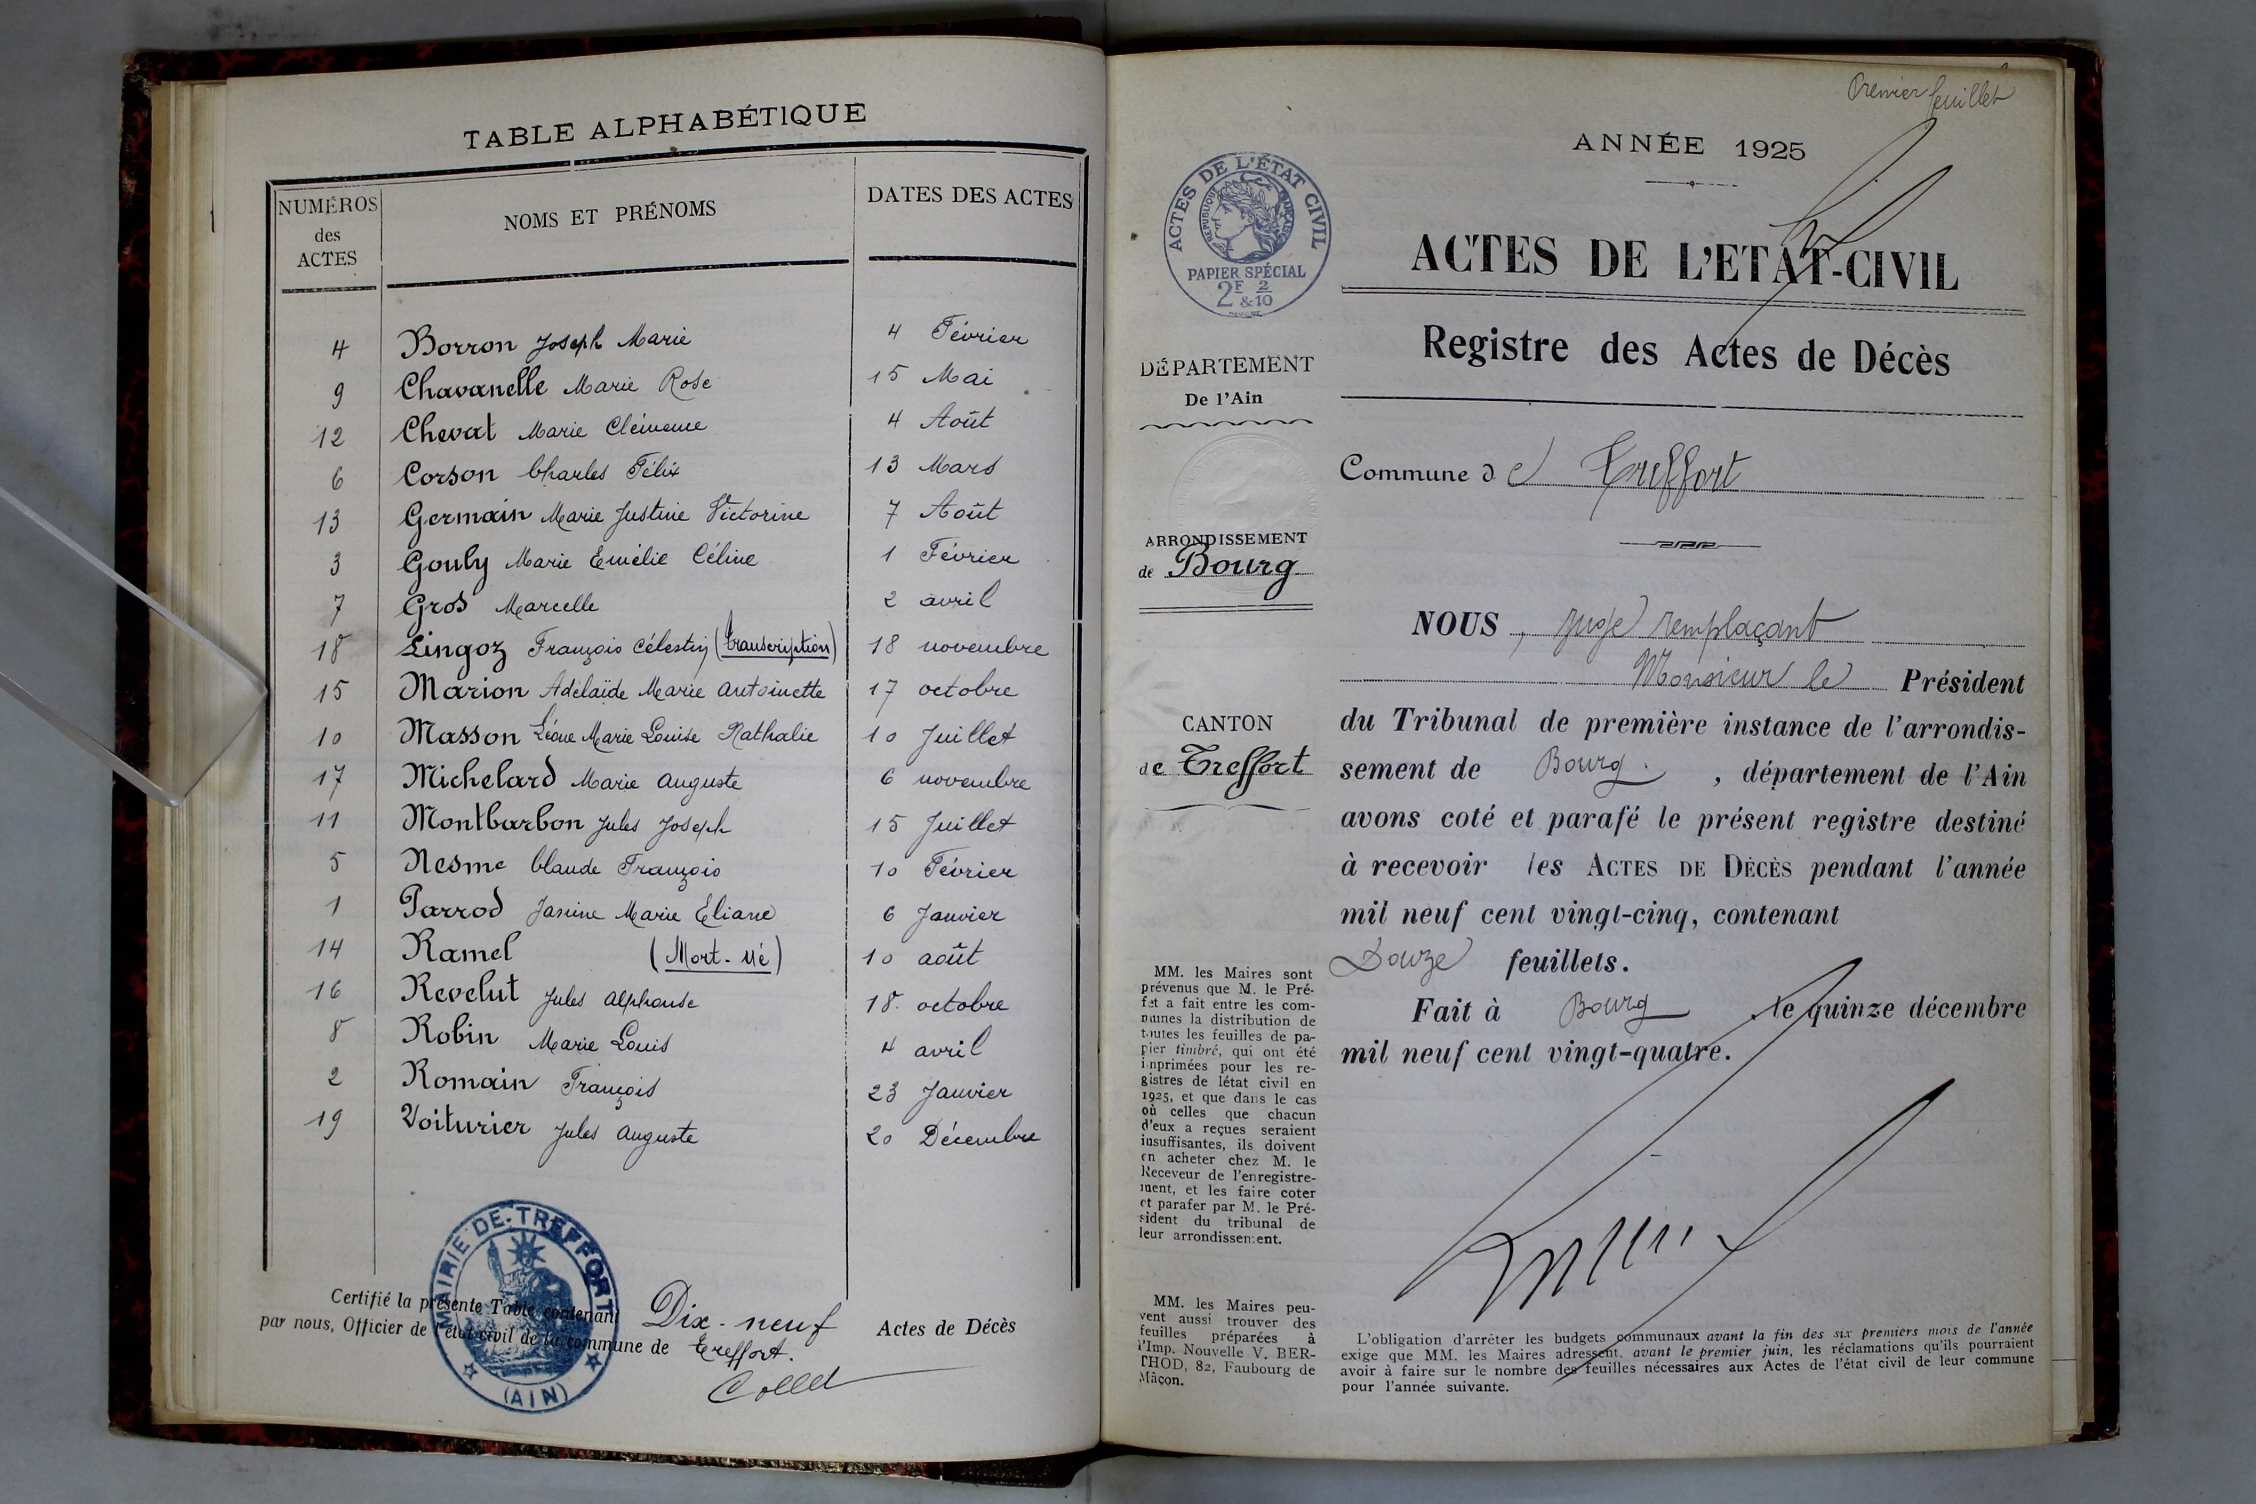 TABLE ALPHABÉTIQUE
NUMÉROS des ACTES NOMS ET PRÉNOMS DATES DES ACTES
4 Borron Joseph Marie 4 Février
9 Chavanelle Marie Rose 15 Mai
12 Chevat Marie Clémence 4 Août
6 Corson Charles Félix 13 Mars
13 Germain Marie Justine Victorine 7 Août
3 Gouly Marie Emélie Céline 1 Février
7 Gros Marcelle 2 avril
18 Lingoz François Célestin (transcription) 18 novembre
15 Marion Adélaïde Marie Antoinette 17 octobre
10 Masson Léone Marie Louise Nathalie 10 Juillet
17 Michelard Marie Auguste 6 novembre
11 Montbarbon Jules Joseph 15 Juillet
5 Nesme Claude François 10 Février
1 Parrod Janine Marie Éliane 6 Janvier
14 Ramel (Mort-né) 10 août
16 Revelut Jules Alphonse 18 octobre
8 Robin Marie Louis 4 avril
2 Romain François 23 Janvier
19 Voiturier Jules Auguste 20 Décembre
MAIRIE DE TREFFORT
(AIN)
Certifié la présente Table contenant Dix-neuf Actes de Décès
par nous, Officier de l'état civil de la commune de Treffort.
Collet
Premier feuillet
ANNÉE 1925
ACTES DE L'ÉTAT CIVIL
RÉPUBLIQUE FRANÇAISE
PAPIER SPÉCIAL
2F & 2/10
ACTES DE L'ETAT-CIVIL
Registre des Actes de Décès
DÉPARTEMENT
De l'Ain
Commune de Treffort
ARRONDISSEMENT
de Bourg
CANTON
de Treffort
NOUS, juge remplaçant
Monsieur le Président
du Tribunal de première instance de l'arrondis-
sement de Bourg, département de l'Ain
avons coté et parafé le présent registre destiné
à recevoir les ACTES DE DÉCÈS pendant l'année
mil neuf cent vingt-cinq, contenant
Douze feuillets.
Fait à Bourg, le quinze décembre
mil neuf cent vingt-quatre.
MM. les Maires sont
prévenus que M. le Pré-
fet a fait entre les com-
munes la distribution de
toutes les feuilles de pa-
pier timbré, qui ont été
imprimées pour les re-
gistres de létat civil en
1925, et que dans le cas
où celles que chacun
d'eux a reçues seraient
insuffisantes, ils doivent
en acheter chez M. le
Receveur de l'enregistre-
ment, et les faire coter
et parafer par M. le Pré-
sident du tribunal de
leur arrondissement.
MM. les Maires peu-
vent aussi trouver des
feuilles préparées à
l'Imp. Nouvelle V. BER-
THOD, 82, Faubourg de
Mâcon.
L'obligation d'arrêter les budgets communaux avant la fin des six premiers mois de l'année
exige que MM. les Maires adressent, avant le premier juin, les réclamations qu'ils pourraient
avoir à faire sur le nombre des feuilles nécessaires aux Actes de l'état civil de leur commune
pour l'année suivante.